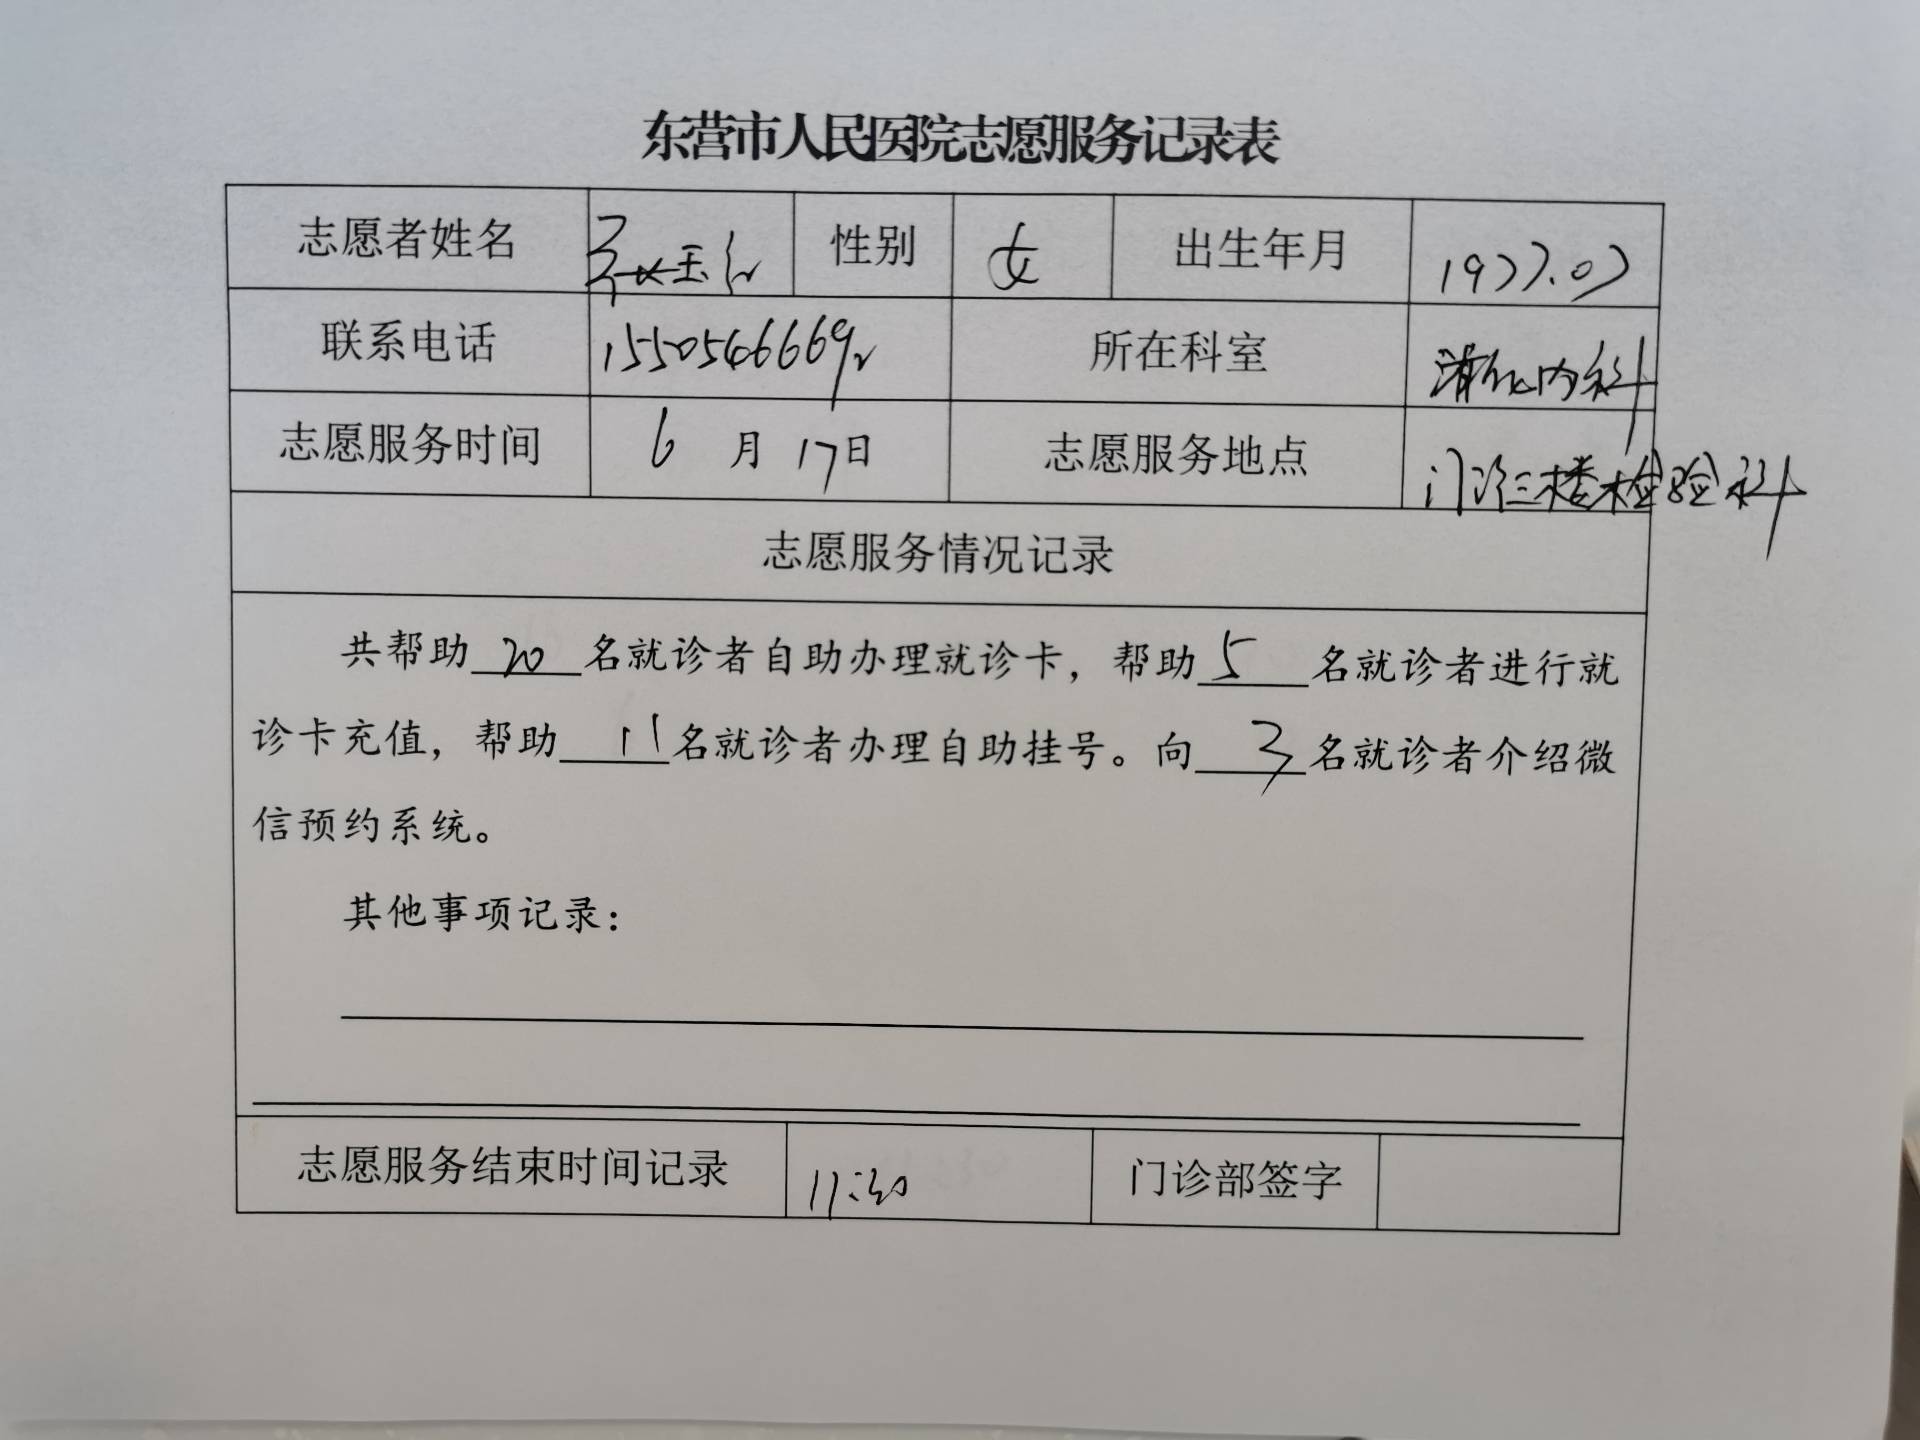 东营市人民医院志愿服务记录表
志愿者姓名 性别 女 出生年月 1977.07
联系电话 15505466692 所在科室 消化内科
志愿服务时间 6 月 17日 志愿服务地点 门诊三楼检验科
志愿服务情况记录
共帮助 20 名就诊者自助办理就诊卡，帮助 5 名就诊者进行就
诊卡充值，帮助 11 名就诊者办理自助挂号。向 3 名就诊者介绍微
信预约系统。
其他事项记录：
志愿服务结束时间记录 11:30 门诊部签字